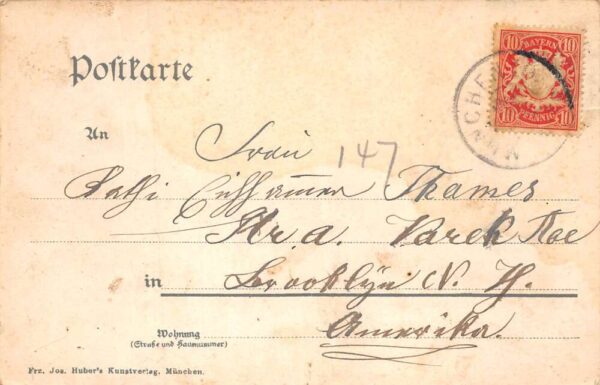 Postkarte
BAYERN
10 10
10 PFENNIG 10
MÜNCHEN
An
Frau
147
Kathi Eichhammer Thames
Str. a. Varek Ave
in Brooklyn N. Y.
Amerika.
Wohnung
(Straße und Hausnummer)
Frz. Jos. Huber's Kunstverlag. München.